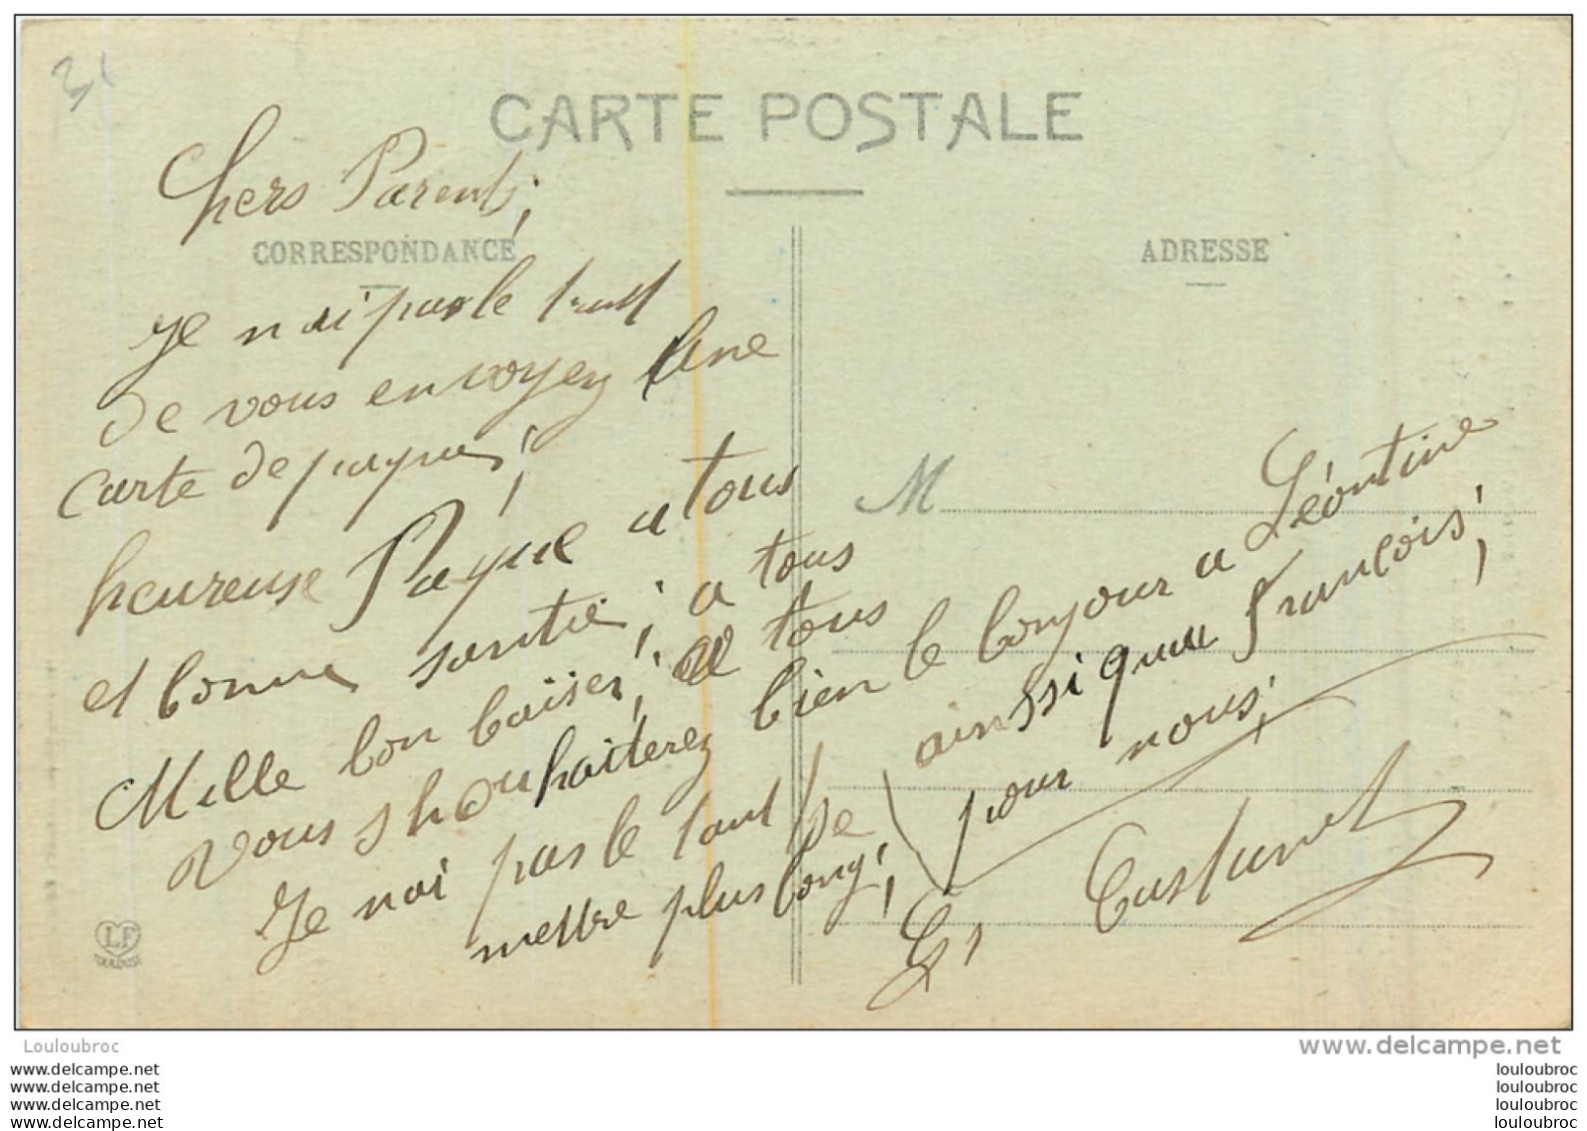 31
CARTE POSTALE
Chers Parents;
CORRESPONDANCE
ADRESSE
Je n ai pas le tout
de vous envoyez Une
carte de paques;
heureuse Paque a tous
et bonne santié; a tous
Mille bon baiser; a tous
Vous shouhaiterez bien le bonjour a Léontine
ainssi quau François;
pour nous;
Je nai pas le tant de
mettre plus long;
M
G, Castanet
LF
TOULOUSE
Louloubroc
www.delcampe.net
www.delcampe.net
www.delcampe.net
www.delcampe.net
www.delcampe.net
louloubroc
louloubroc
louloubroc
louloubroc